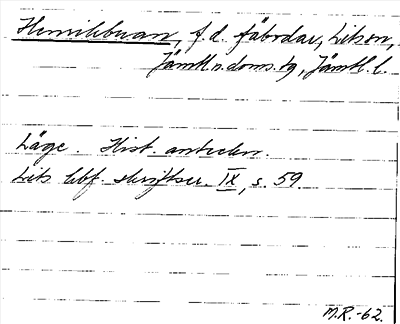 Himilibuan, f.d. fäbodar, Litson,
Jämtl. n. doms. tg, Jämtl. l.
Läge. Hist. anteckn.
Lits hbf. skriftser. IX, s. 59.
M.R.-62.